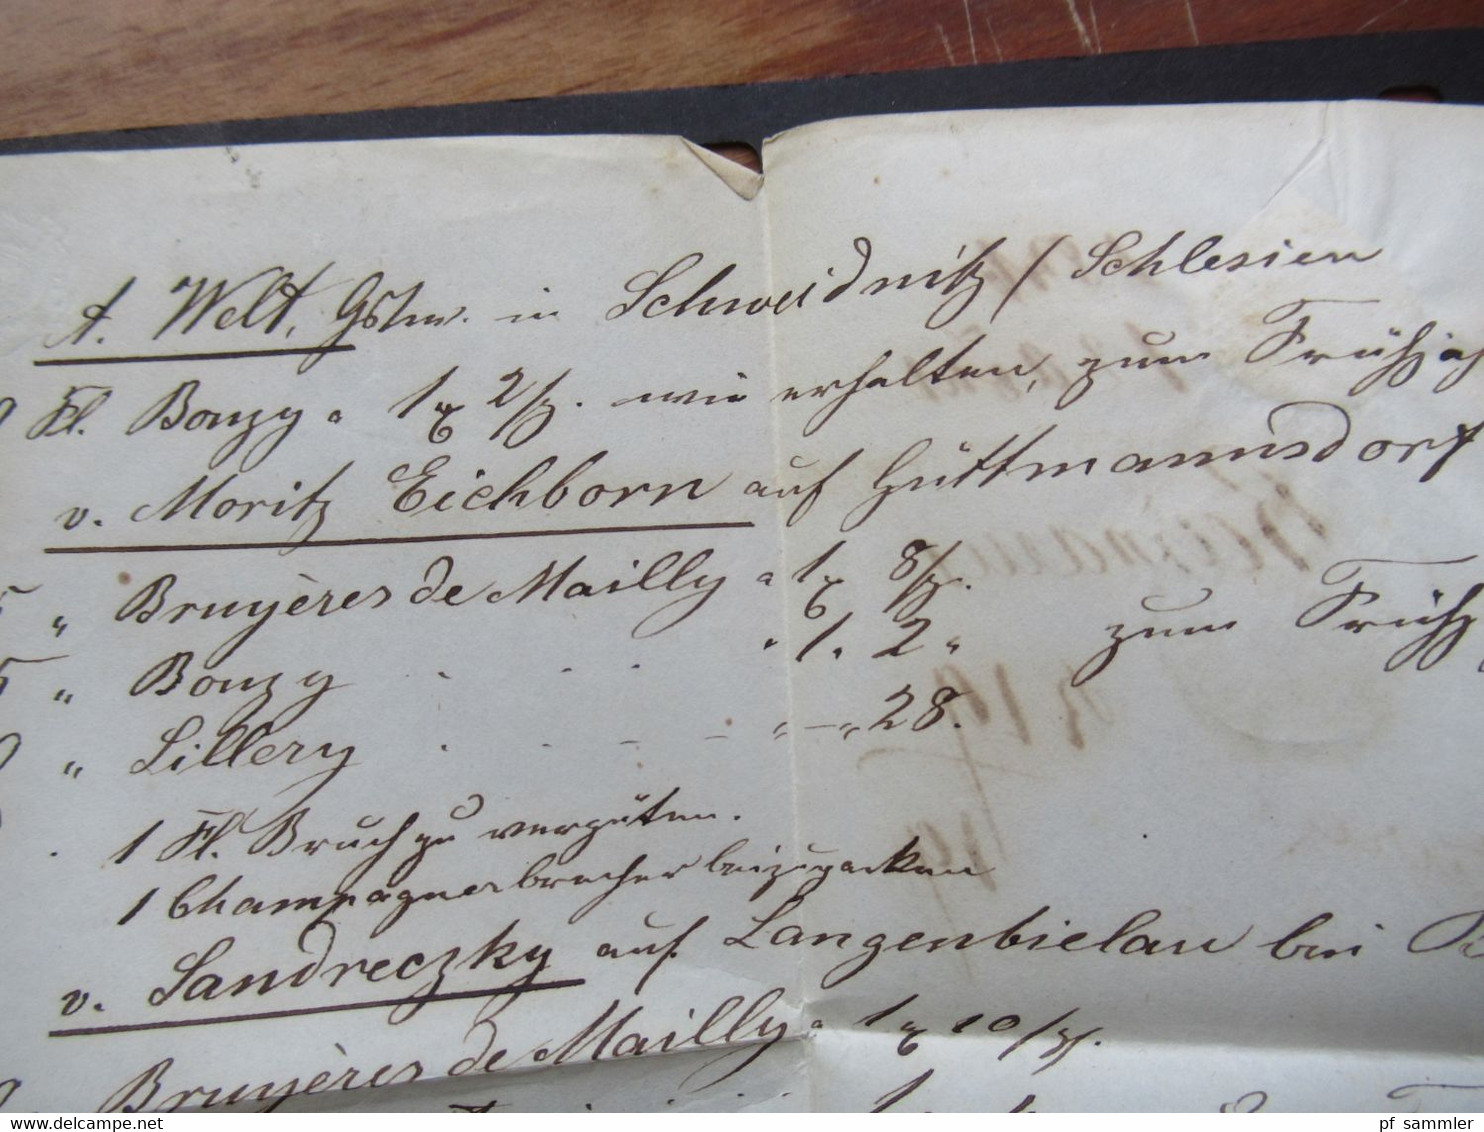 A. Welt, Gsthw. in Schweidnitz / Schlesien
Fl. Bouzy a 1 2/3. wie erhalten, zum Frühjah
v. Moritz Eichborn auf Hüttmannsdorf
5 " Bruyères de Mailly a 1 8/
5 " Bouzy . . . " 1. 2 " zum Frühj
" Sillery . . - - " — " 28.
1 Fl. Bruch zu vergüten.
1 Champagnerbrecher beizupacken
v. Sandreczky auf Langenbielau bei R
Bruyères de Mailly a 1 10/
www.delcampe.net
pf_sammler